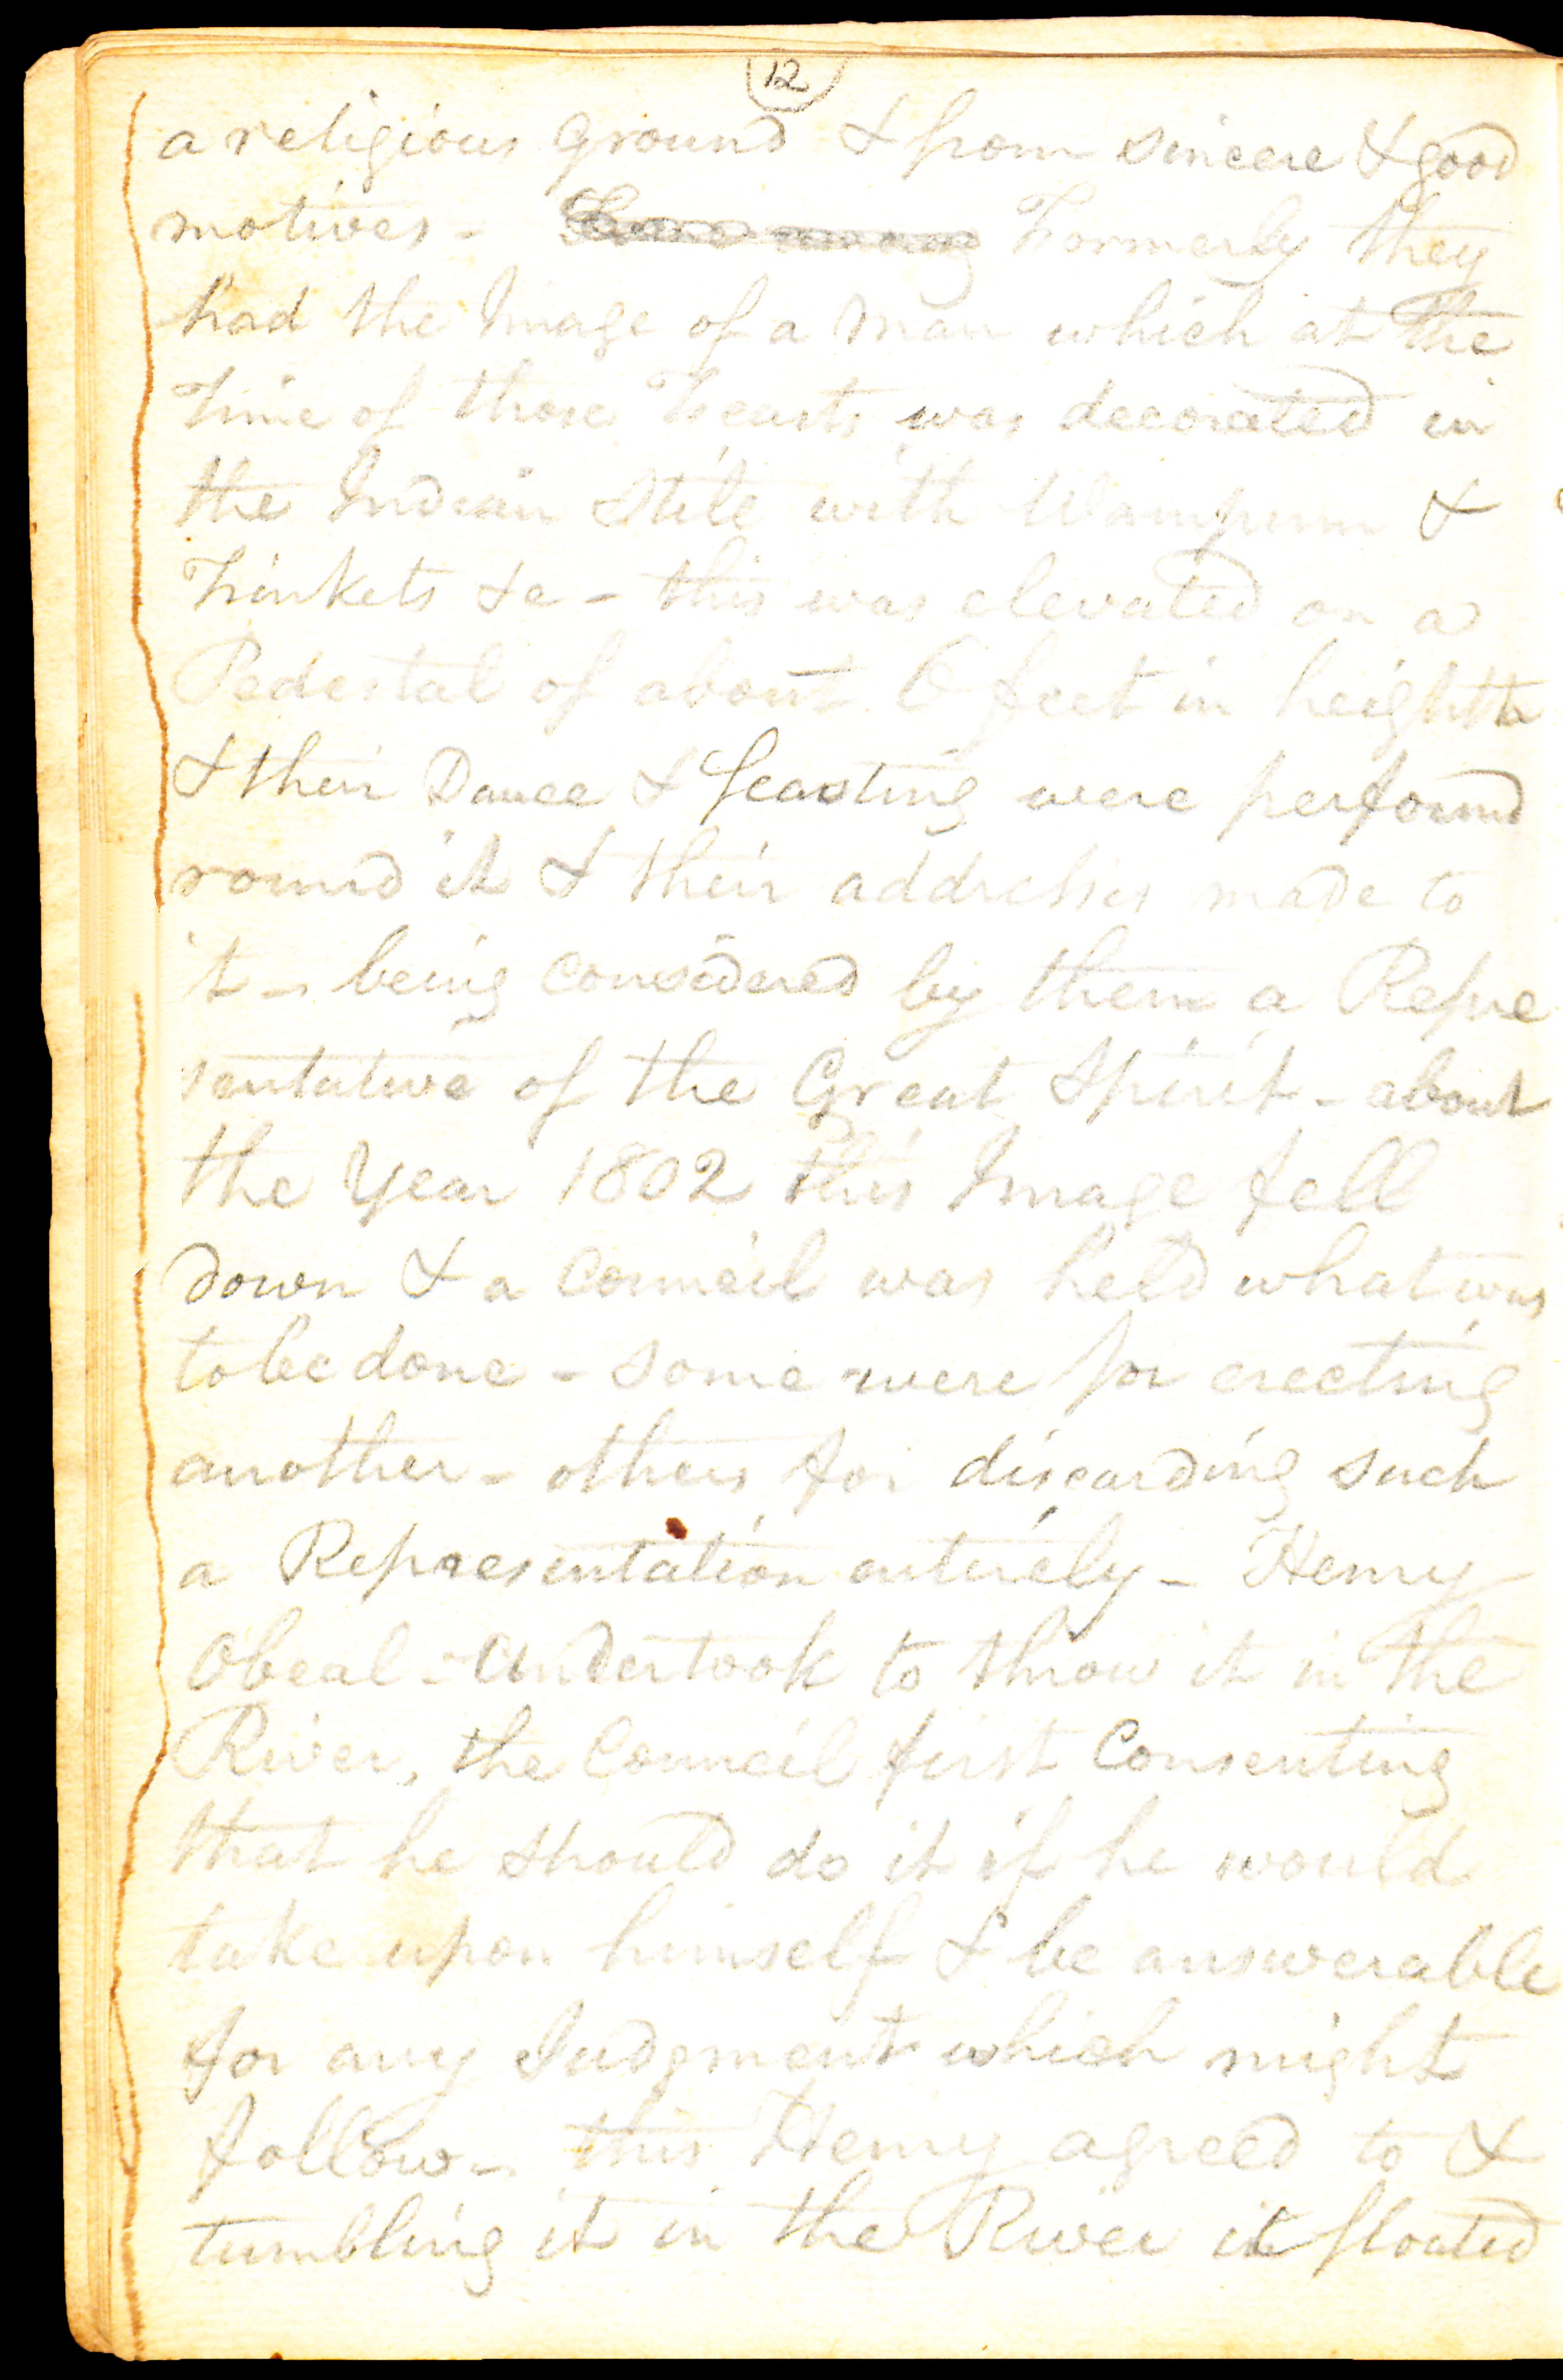 12
a religious ground & from sincere & good
motives - Formerly they
had the Image of a Man which at the
Time of those Feasts was decorated in
the Indian Stile with Wampum &
Trinkets &c - this was elevated on a
Pedestal of about 6 feet in heighth
& their Dance & feasting were performd
round it & their addresses made to
it - being considered by them a Repre
sentative of the Great Spirit - about
the Year 1802 this Image fell
down & a Council was held what was
to be done - some were for erecting
another - others for discarding such
a Representation entirely - Henry
Obeal - undertook to throw it in the
River, the Council first Consenting
that he should do it if he would
take upon himself & be answerable
for any Judgment which might
follow - this Henry agreed to &
tumbling it in the River it floated